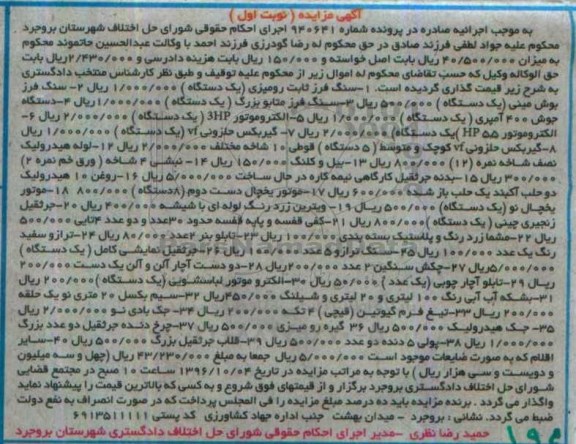 آگهی مزایده ( نوبت اول )
به موجب اجرائیه صادره در پرونده شماره ۹۴۰۶۴۱ اجرای احکام حقوقی شورای حل اختلاف شهرستان بروجرد
محکوم علیه جواد لطفی فرزند صادق در حق محکوم له رضا گودرزی فرزند احمد با وکالت عبدالحسین حاتموند محکوم
به میزان ۴۰/۵۰۰/۰۰۰ ریال بابت اصل خواسته و ۱۵۰/۰۰۰ ریال بابت هزینه دادرسی و ۲/۴۳۰/۰۰۰ ریال بابت
حق الوکاله وکیل که حسب تقاضای محکوم له اموال زیر از محکوم علیه توقیف و طبق نظر کارشناس منتخب دادگستری
به شرح زیر قیمت گذاری گردیده است. ۱-سنگ فرز ثابت رومیزی (یک دستگاه ) ۱/۰۰۰/۰۰۰ ریال ۲- سنگ فرز
بوش مینی (یک دستگاه ) ۵۰۰/۰۰۰ ریال ۳-سنگ فرز متابو بزرگ ( یک دستگاه ) ۱/۰۰۰/۰۰۰ ریال ۴-دستگاه
جوش ۴۰۰ آمپری ( یک دستگاه ) ۱/۰۰۰/۰۰۰ ریال ۵-الکتروموتور 3HP ( یک دستگاه) ۲/۰۰۰/۰۰۰ ریال ۶-
الکتروموتور ۵۵ HP (یک دستگاه) ۲/۰۰۰/۰۰۰ ریال ۷- گیربکس حلزونی vf (یک دستگاه ) ۱/۰۰۰/۰۰۰ ریال
۸-گیربکس حلزونی vf کوچک و متوسط ( ۵ دستگاه ) قوطی ۱۰ شاخه مختلف ۲/۰۰۰/۰۰۰ ریال ۱۲-لوله هیدرولیک
نصف شاخه نمره (۱۲) ۸۰۰/۰۰۰ ریال ۱۳-بیل و کلنگ ۱۵۰/۰۰۰ ریال ۱۴- نبشی ۴ شاخه ( ورق خم نمره ۲)
۳۰۰/۰۰۰ ریال ۱۵-بدنه جرثقیل کارگاهی نیمه کاره در حال ساخت ۵/۰۰۰/۰۰۰ ریال ۱۶-روغن ۱۰ هیدرولیک
دو حلب آکبند یک حلب باز شده ۶۰۰/۰۰۰ ریال ۱۷-موتور یخچال دست دوم (۸دستگاه ) ۸۰۰/۰۰۰ ۱۸-موتور
یخچال نو (یک دستگاه) ۵۰۰/۰۰۰ ریال ۱۹- ویترین زرد رنگ لوله ای با شیشه ۴۰۰/۰۰۰ ریال ۲۰-جرثقیل
زنجیری چینی ( یک دستگاه ) ۸۰۰/۰۰۰ ریال ۲۱-کفی قفسه و پایه قفسه حدود ۳۰عدد و دو عدد ۴تایی ۵۰۰/۰۰۰
ریال ۲۲-مشما زرد رنگ و پلاستیک بسته بندی ۱۰۰/۰۰۰ ریال ۲۳-تابلو بنر ۲عدد ۸۰/۰۰۰ ریال ۲۴-ترازو سفید
رنگ یک عدد ۱۰۰/۰۰۰ ریال ۲۵-سنگ ترازو ۵ عدد ۱۰۰/۰۰۰ ریال ۲۶-جرثقیل نمایشی کامل ( یک دستگاه )
۵/۰۰۰/۰۰۰ریال ۲۷-چکش سنگین ۲ عدد ۲۰۰/۰۰۰ریال ۲۸-دو دست آچار آلن و آلن یک دست ۲۰۰/۰۰۰
ریال ۲۹-تابلو آچار چوبی (یک عدد ) ۵۰/۰۰۰ ریال ۳۰-الکترو موتور لباسشویی (یک دستگاه ) ۲۰۰/۰۰۰ ریال
۳۱-بشکه آب آبی رنگ ۱۰۰ لیتری و ۲۰ لیتری و شیلنگ ۴۵۰/۰۰۰ریال ۳۲-سیم بکسل ۲۰ متری نو یک حلقه
۲۰۰/۰۰۰ ریال ۳۳-تیغ فرم گیوتین (قیچی ) ۴ تکه ۲۰۰/۰۰۰ ریال ۳۴-جک بادی نو ۲/۰۰۰/۰۰۰ ریال
۳۵-جک هیدرولیک ۵۰۰/۰۰۰ ریال ۳۶ گیره رو میزی ۵۰۰/۰۰۰ ریال ۳۷-چرخ دنده جرثقیل دو عدد بزرگ
۱/۰۰۰/۰۰۰ ریال ۳۸-پولی ۵ دنده دو عدد ۵۰۰/۰۰۰ ریال ۳۹-قلاب جرثقیل بزرگ ۵۰۰/۰۰۰ ریال ۴۰-سایر
اقلام که به صورت ضایعات موجود است ۵/۰۰۰/۰۰۰ ریال جمعا به مبلغ ۴۳/۲۳۰/۰۰۰ ریال (چهل و سه میلیون
و دویست و سی هزار ریال ) با توجه به مراتب مزایده در تاریخ ۱۳۹۶/۱۰/۰۴ ساعت ۱۰ صبح در مجتمع قضایی
شورای حل اختلاف دادگستری بروجرد برگزار و از قیمتهای فوق شروع و به کسی که بالاترین قیمت را پیشنهاد نماید
واگذار می گردد . برنده مزایده باید ده درصد مبلغ مزایده را فی المجلس پرداخت که در صورت انصراف به نفع دولت
ضبط می گردد. نشانی : بروجرد - میدان بهشت جنب اداره جهاد کشاورزی کد پستی ۶۹۱۳۵۱۱۱۱۱
حمید رضا نظری -مدیر اجرای احکام حقوقی شورای حل اختلاف دادگستری شهرستان بروجرد